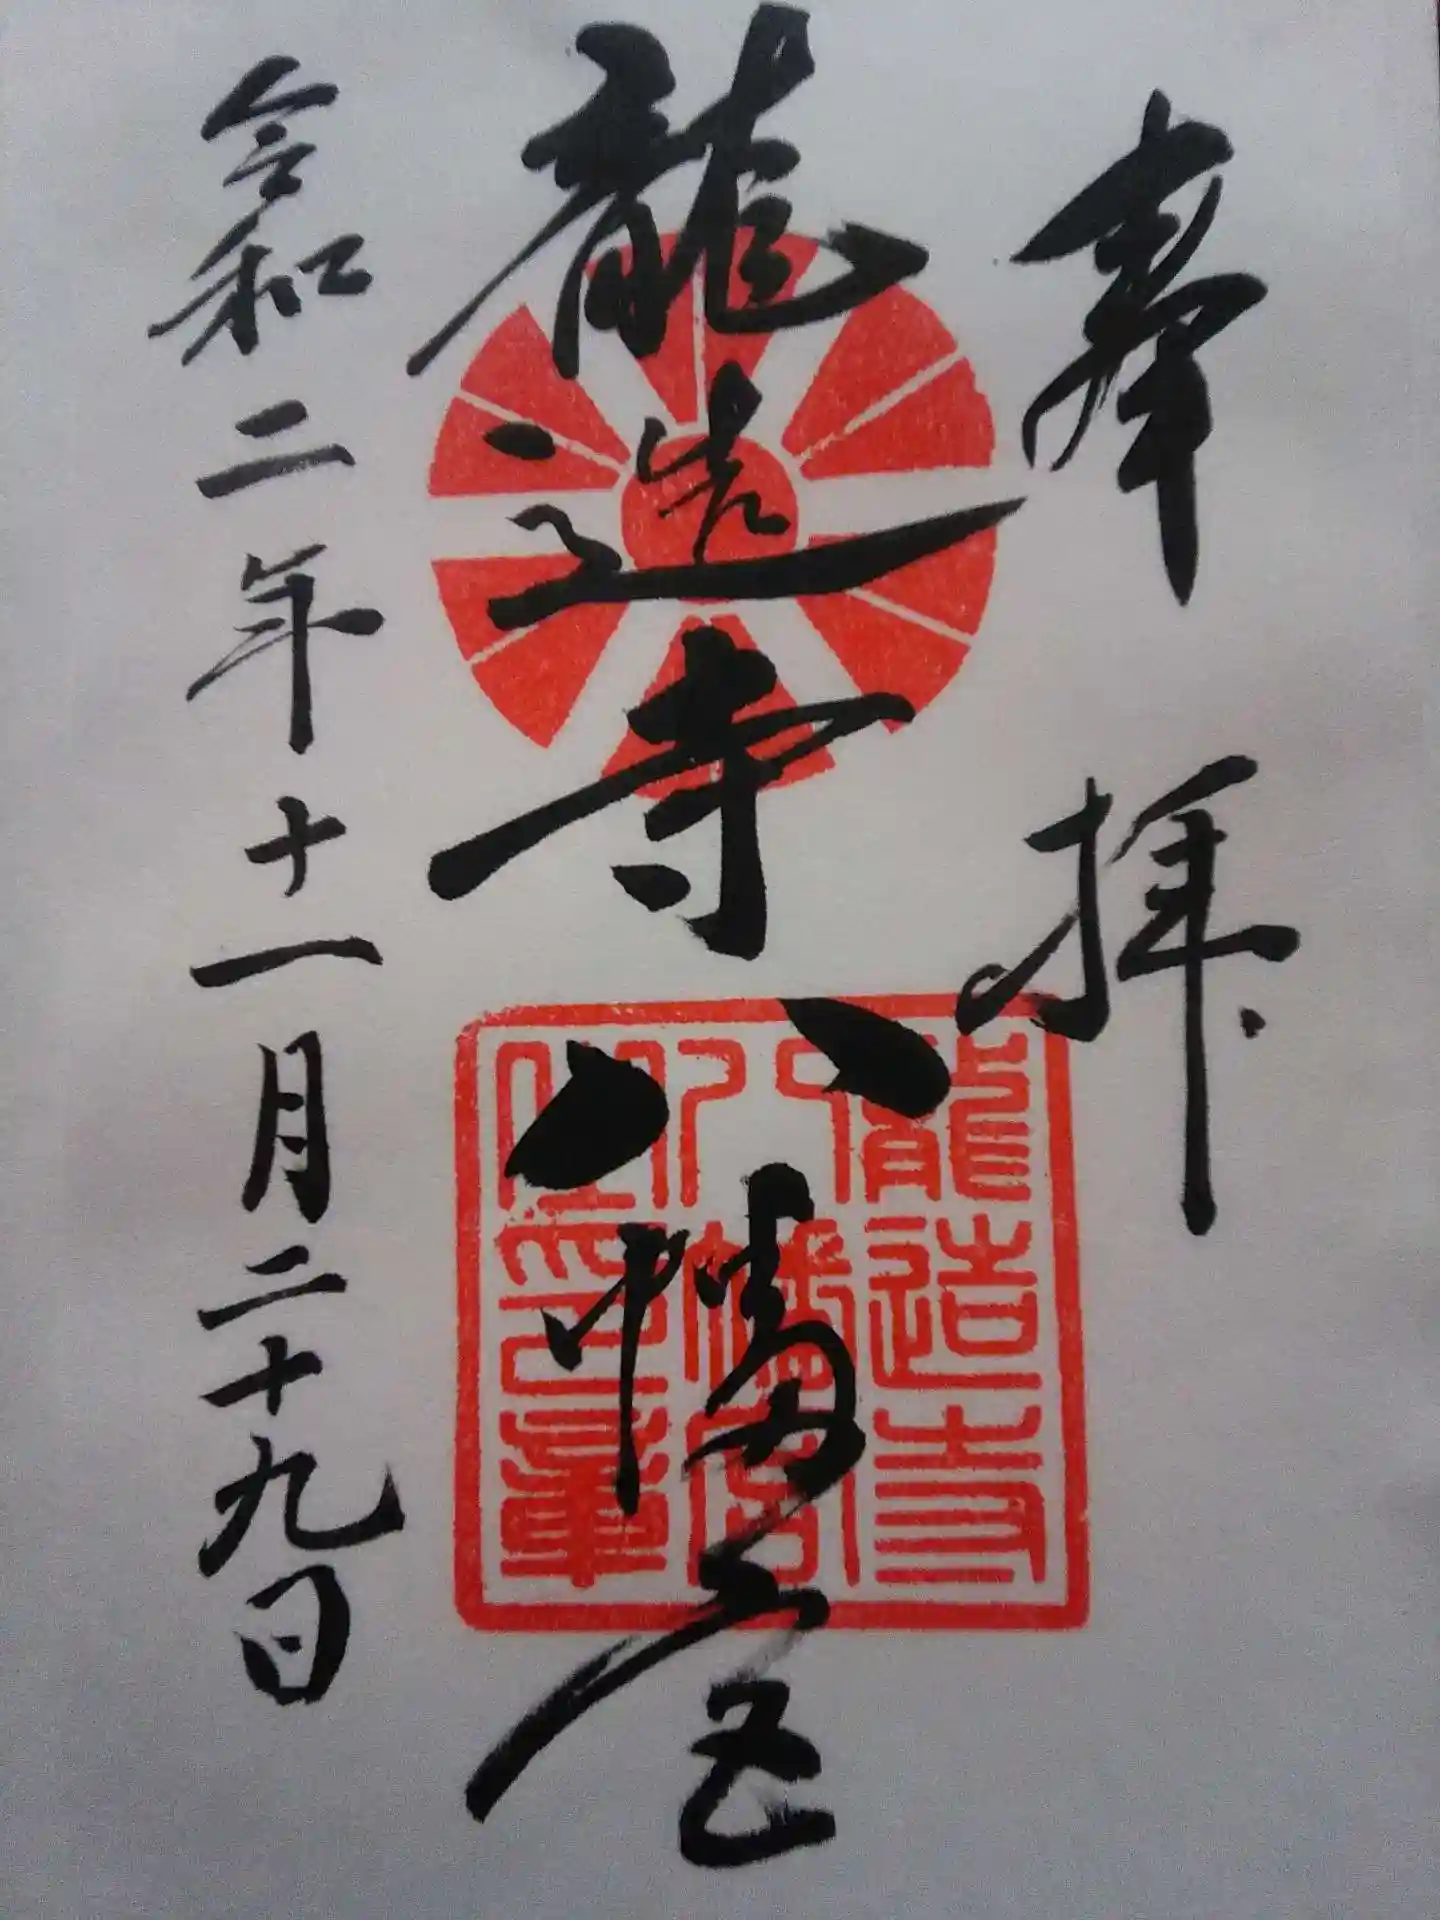 奉拝
龍造寺八幡宮
龍造寺
八幡宮
之印章
令和二年十一月二十九日